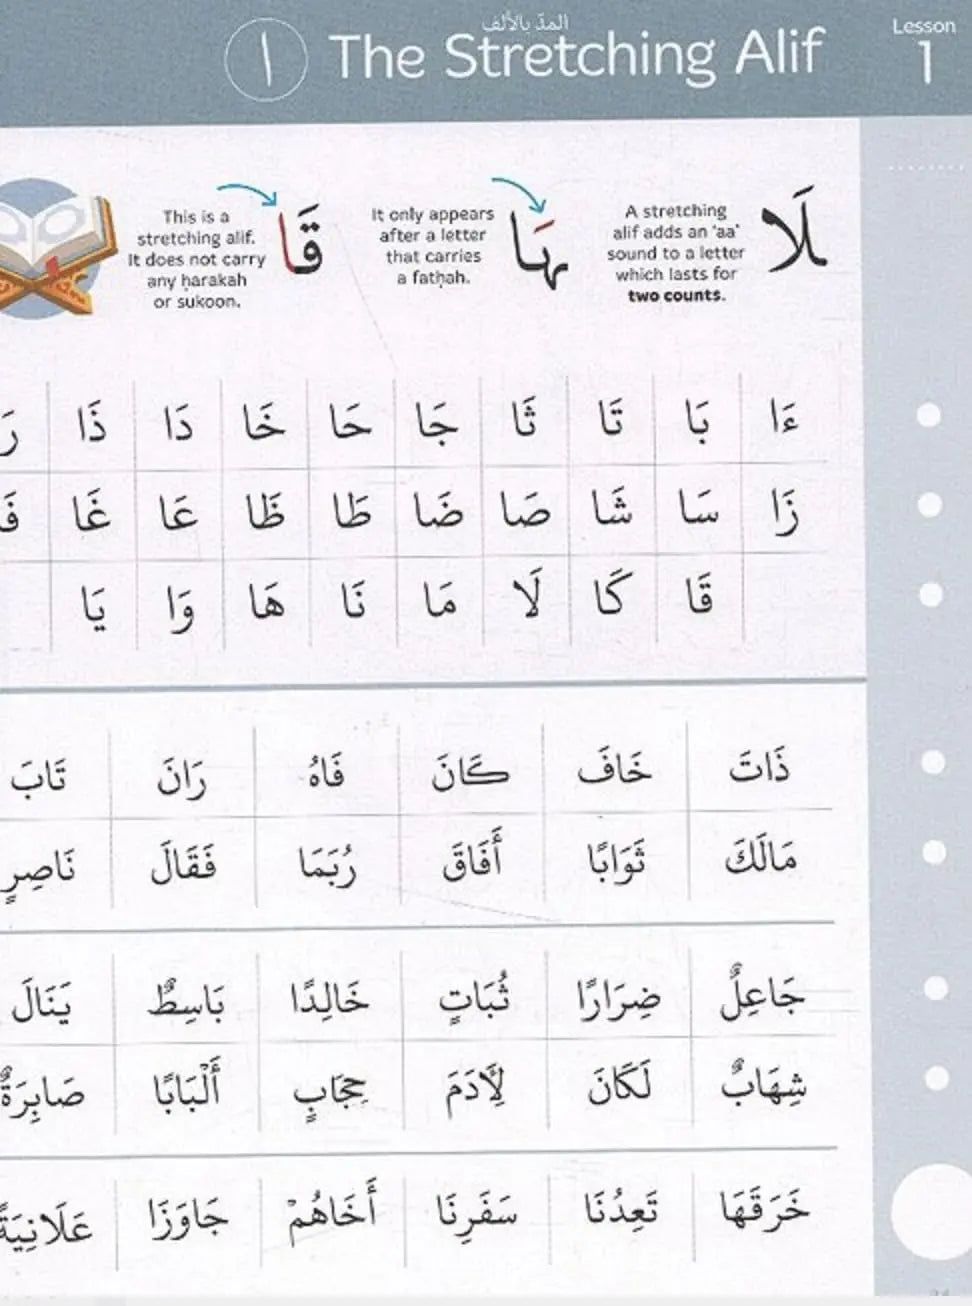 المدّ بالألف
Lesson
1
The Stretching Alif
ا
لَا
A stretching
alif adds an 'aa'
sound to a letter
which lasts for
two counts.
هَا
It only appears
after a letter
that carries
a fatḥah.
قَا
This is a
stretching alif.
It does not carry
any ḥarakah
or sukoon.
ءَا بَا تَا ثَا جَا حَا خَا دَا ذَا
زَا سَا شَا صَا ضَا طَا ظَا عَا غَا
قَا كَا لَا مَا نَا هَا وَا يَا
ذَاتَ خَافَ كَانَ فَاهُ رَانَ تَابَ
مَالَكَ ثَوَابًا أَفَاقَ رُبَمَا فَقَالَ نَاصِرٍ
جَاعِلٌ ضِرَارًا ثُبَاتٍ خَالِدًا بَاسِطٌ يَنَالَ
شِهَابٌ لَكَانَ لِأَدَمَ حِجَابٍ أَلْبَابًا صَابِرَةٌ
خَرَقَهَا تَعِدُنَا سَفَرِنَا أَخَاهُمْ جَاوَزَا عَلَانِيَةً